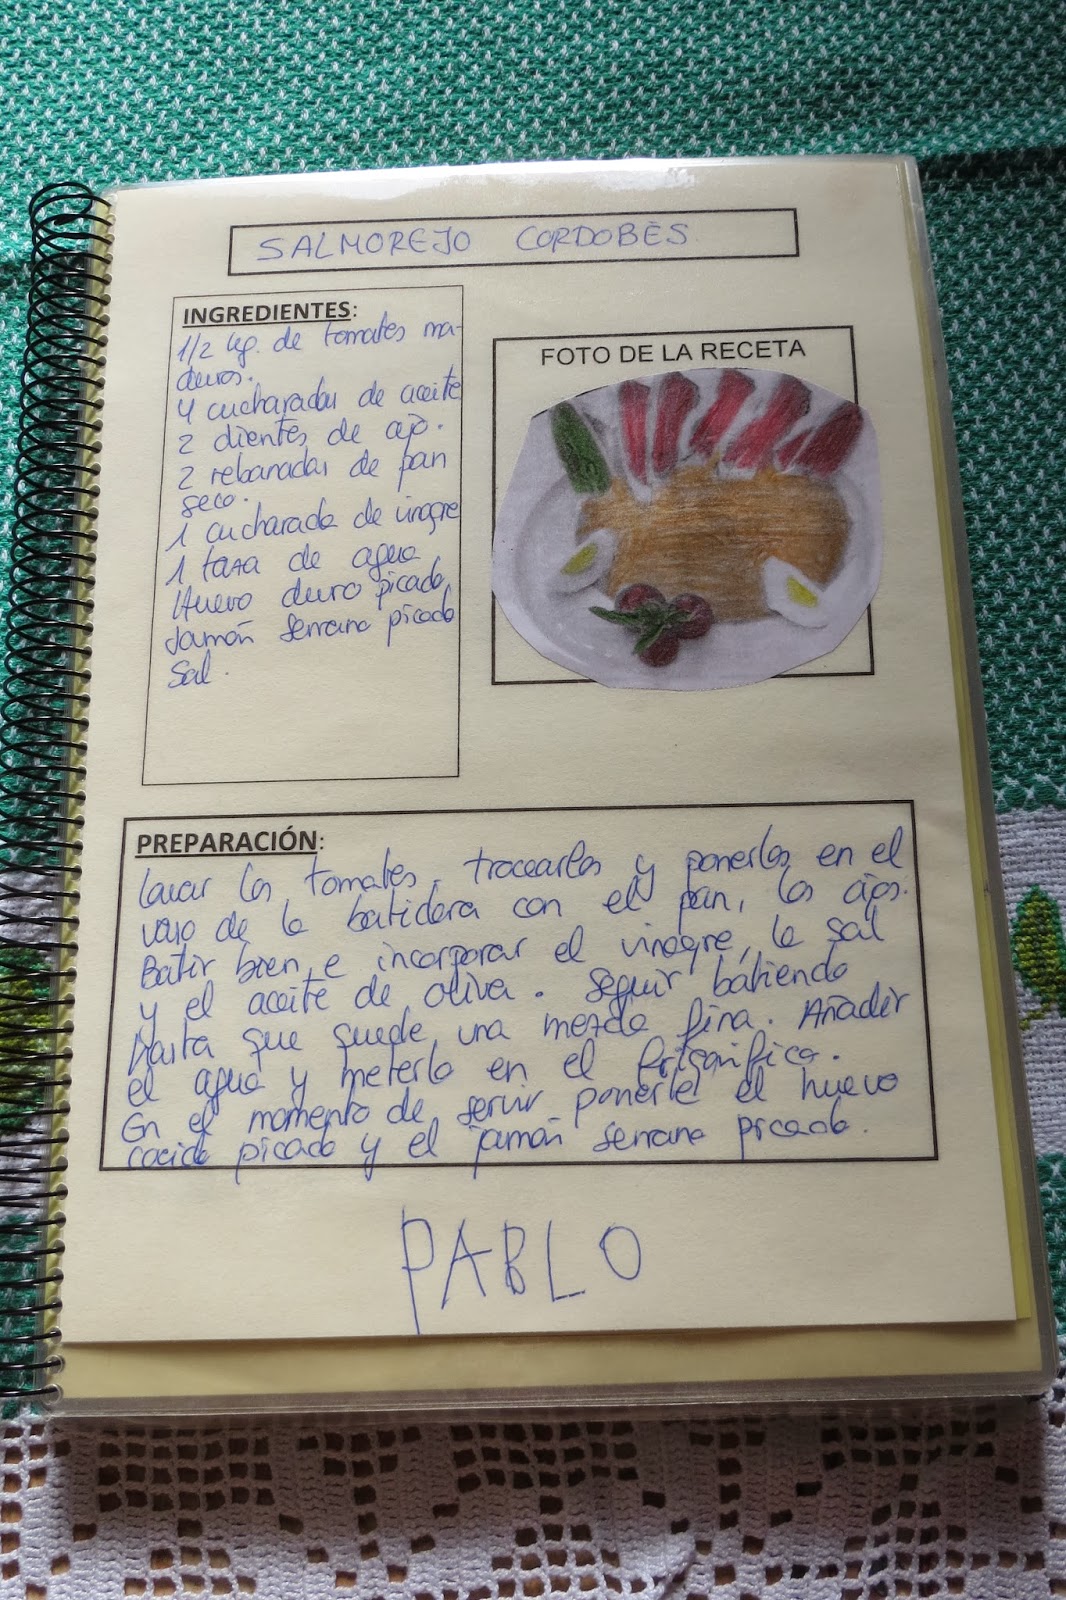 SALMOREJO CORDOBÈS
INGREDIENTES:
1/2 kg. de tomates ma-
duros.
4 cucharadas de aceite
2 dientes de ajo.
2 rebanadas de pan
seco.
1 cucharada de vinagre
1 taza de agua
Huevo duro picado,
Jamón serrano picado
Sal.
FOTO DE LA RECETA
PREPARACIÓN:
Lavar los tomates, trocearlos y ponerlos en el
vaso de la batidora con el pan, los ajos.
Batir bien e incorporar el vinagre, la sal
y el aceite de oliva. Seguir batiendo
hasta que quede una mezcla fina. Añadir
el agua y meterlo en el frigorífico.
En el momento de servir ponerle el huevo
cocido picado y el jamón serrano picado.
PABLO